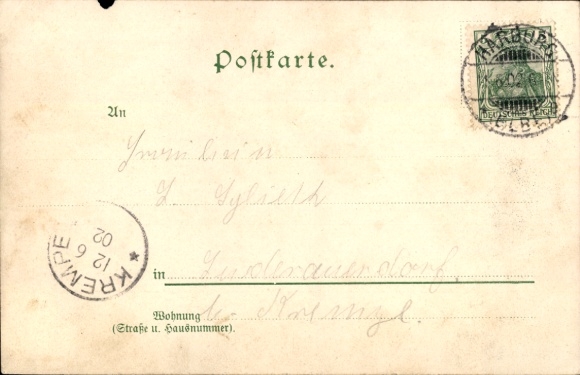 Postkarte.
HARBURG
.02.
* ELBE
DEUTSCHES REICH
An
Fräulein
in
bei Krempe.
KREMPE
12 6
02
Wohnung
(Straße u. Hausnummer).